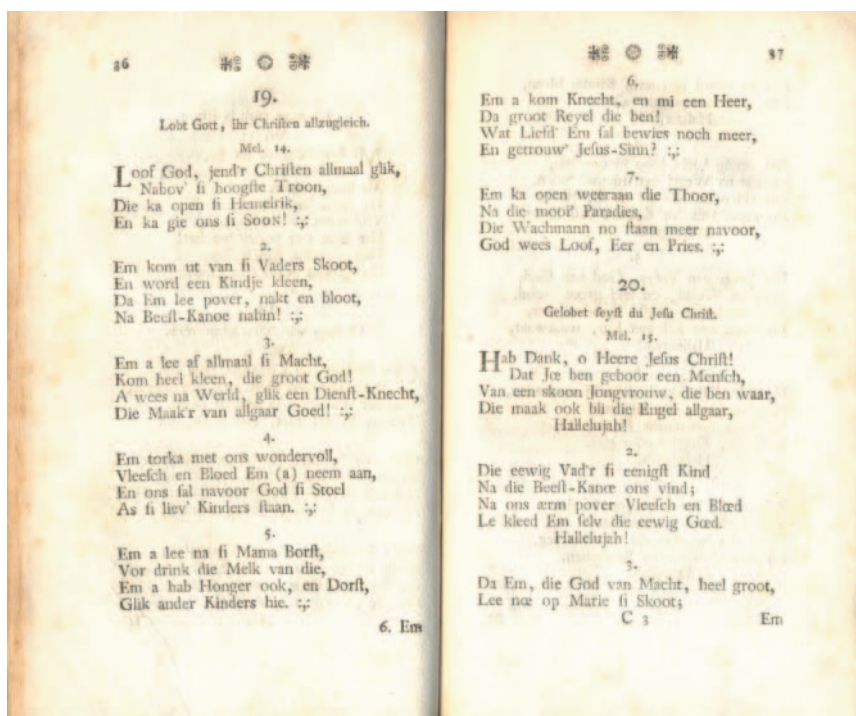 36
19.
Lobt Gott, ihr Chriſten allzugleich.
Mel. 14.
Loof God, jend'r Chriſten allmaal glik,
Nabov' ſi hoogſte Troon,
Die ka open ſi Hemelrik,
En ka gie ons ſi SOON! :,:
2.
Em kom ut van ſi Vaders Skoot,
En word een Kindje kleen,
Da Em lee pover, nakt en bloot,
Na Beeſt-Kanoe nabin! :,:
3.
Em a lee af allmaal ſi Macht,
Kom heel kleen, die groot God!
A wees na Werld, glik een Dienſt-Knecht,
Die Maak'r van allgaar Goed! :,:
4.
Em torka met ons wondervoll,
Vleeſch en Bloed Em (a) neem aan,
En ons ſal navoor God ſi Stoel
As ſi liev' Kinders ſtaan. :,:
5.
Em a lee na ſi Mama Borſt,
Vor drink die Melk van die,
Em a hab Honger ook, en Dorſt,
Glik ander Kinders hie. :,:
6. Em
37
6.
Em a kom Knecht, en mi een Heer,
Da groot Reyel die ben!
Wat Liefd' Em ſal bewies noch meer,
En getrouw' Jeſus-Sinn? :,:
7.
Em ka open weeraan die Thoor,
Na die mooi' Paradies,
Die Wachmann no ſtaan meer navoor,
God wees Loof, Eer en Pries. :,:
20.
Gelobet ſeyſt du Jeſu Chriſt.
Mel. 15.
Hab Dank, o Heere Jeſus Chriſt!
Dat Jœ ben geboor een Menſch,
Van een skoon Jongvrouw, die ben waar,
Die maak ook bli die Engel allgaar,
Hallelujah!
2.
Die eewig Vad'r ſi eenigſt Kind
Na die Beeſt-Kanœ ons vind;
Na ons ærm pover Vleeſch en Blœd
Le kleed Em ſelv die eewig Gœd.
Hallelujah!
3.
Da Em, die God van Macht, heel groot,
Lee nœ op Marie ſi Skoot;
C 3
Em